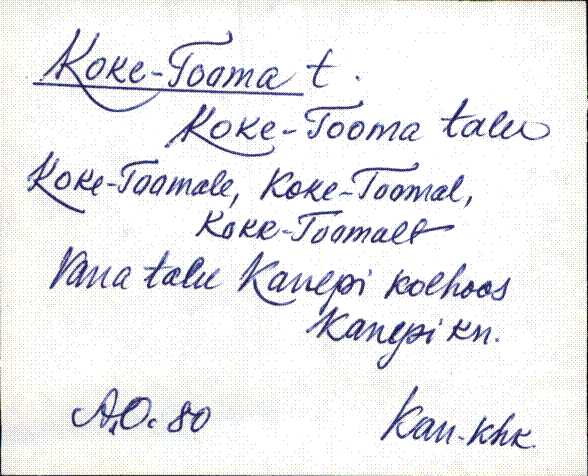 Koke-Tooma t.
Koke-Tooma talu
Koke-Toomale, Koke-Toomal,
Koke-Toomalt
Vana talu Kanepi kolhoos
Kanepi kn.
A.O. 80
Kan-khk